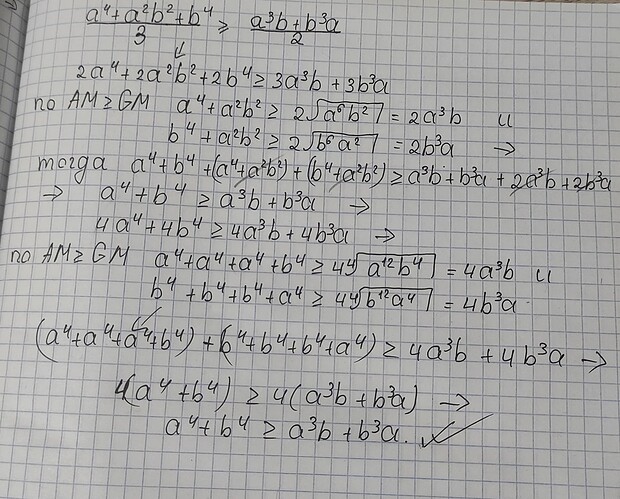 (a⁴+a²b²+b⁴)/3 ≥ (a³b+b³a)/2
↓
2a⁴+2a²b²+2b⁴ ≥ 3a³b+3b³a
по AM≥GM a⁴+a²b² ≥ 2√(a⁶b²) = 2a³b и
b⁴+a²b² ≥ 2√(b⁶a²) = 2b³a →
тогда a⁴+b⁴+(a⁴+a²b²)+(b⁴+a²b²) ≥ a³b+b³a+2a³b+2b³a
→ a⁴+b⁴ ≥ a³b+b³a →
4a⁴+4b⁴ ≥ 4a³b+4b³a →
по AM≥GM a⁴+a⁴+a⁴+b⁴ ≥ 4∜(a¹²b⁴) = 4a³b и
b⁴+b⁴+b⁴+a⁴ ≥ 4∜(b¹²a⁴) = 4b³a
(a⁴+a⁴+a⁴+b⁴)+(b⁴+b⁴+b⁴+a⁴) ≥ 4a³b+4b³a →
4(a⁴+b⁴) ≥ 4(a³b+b³a) →
a⁴+b⁴ ≥ a³b+b³a. ✓